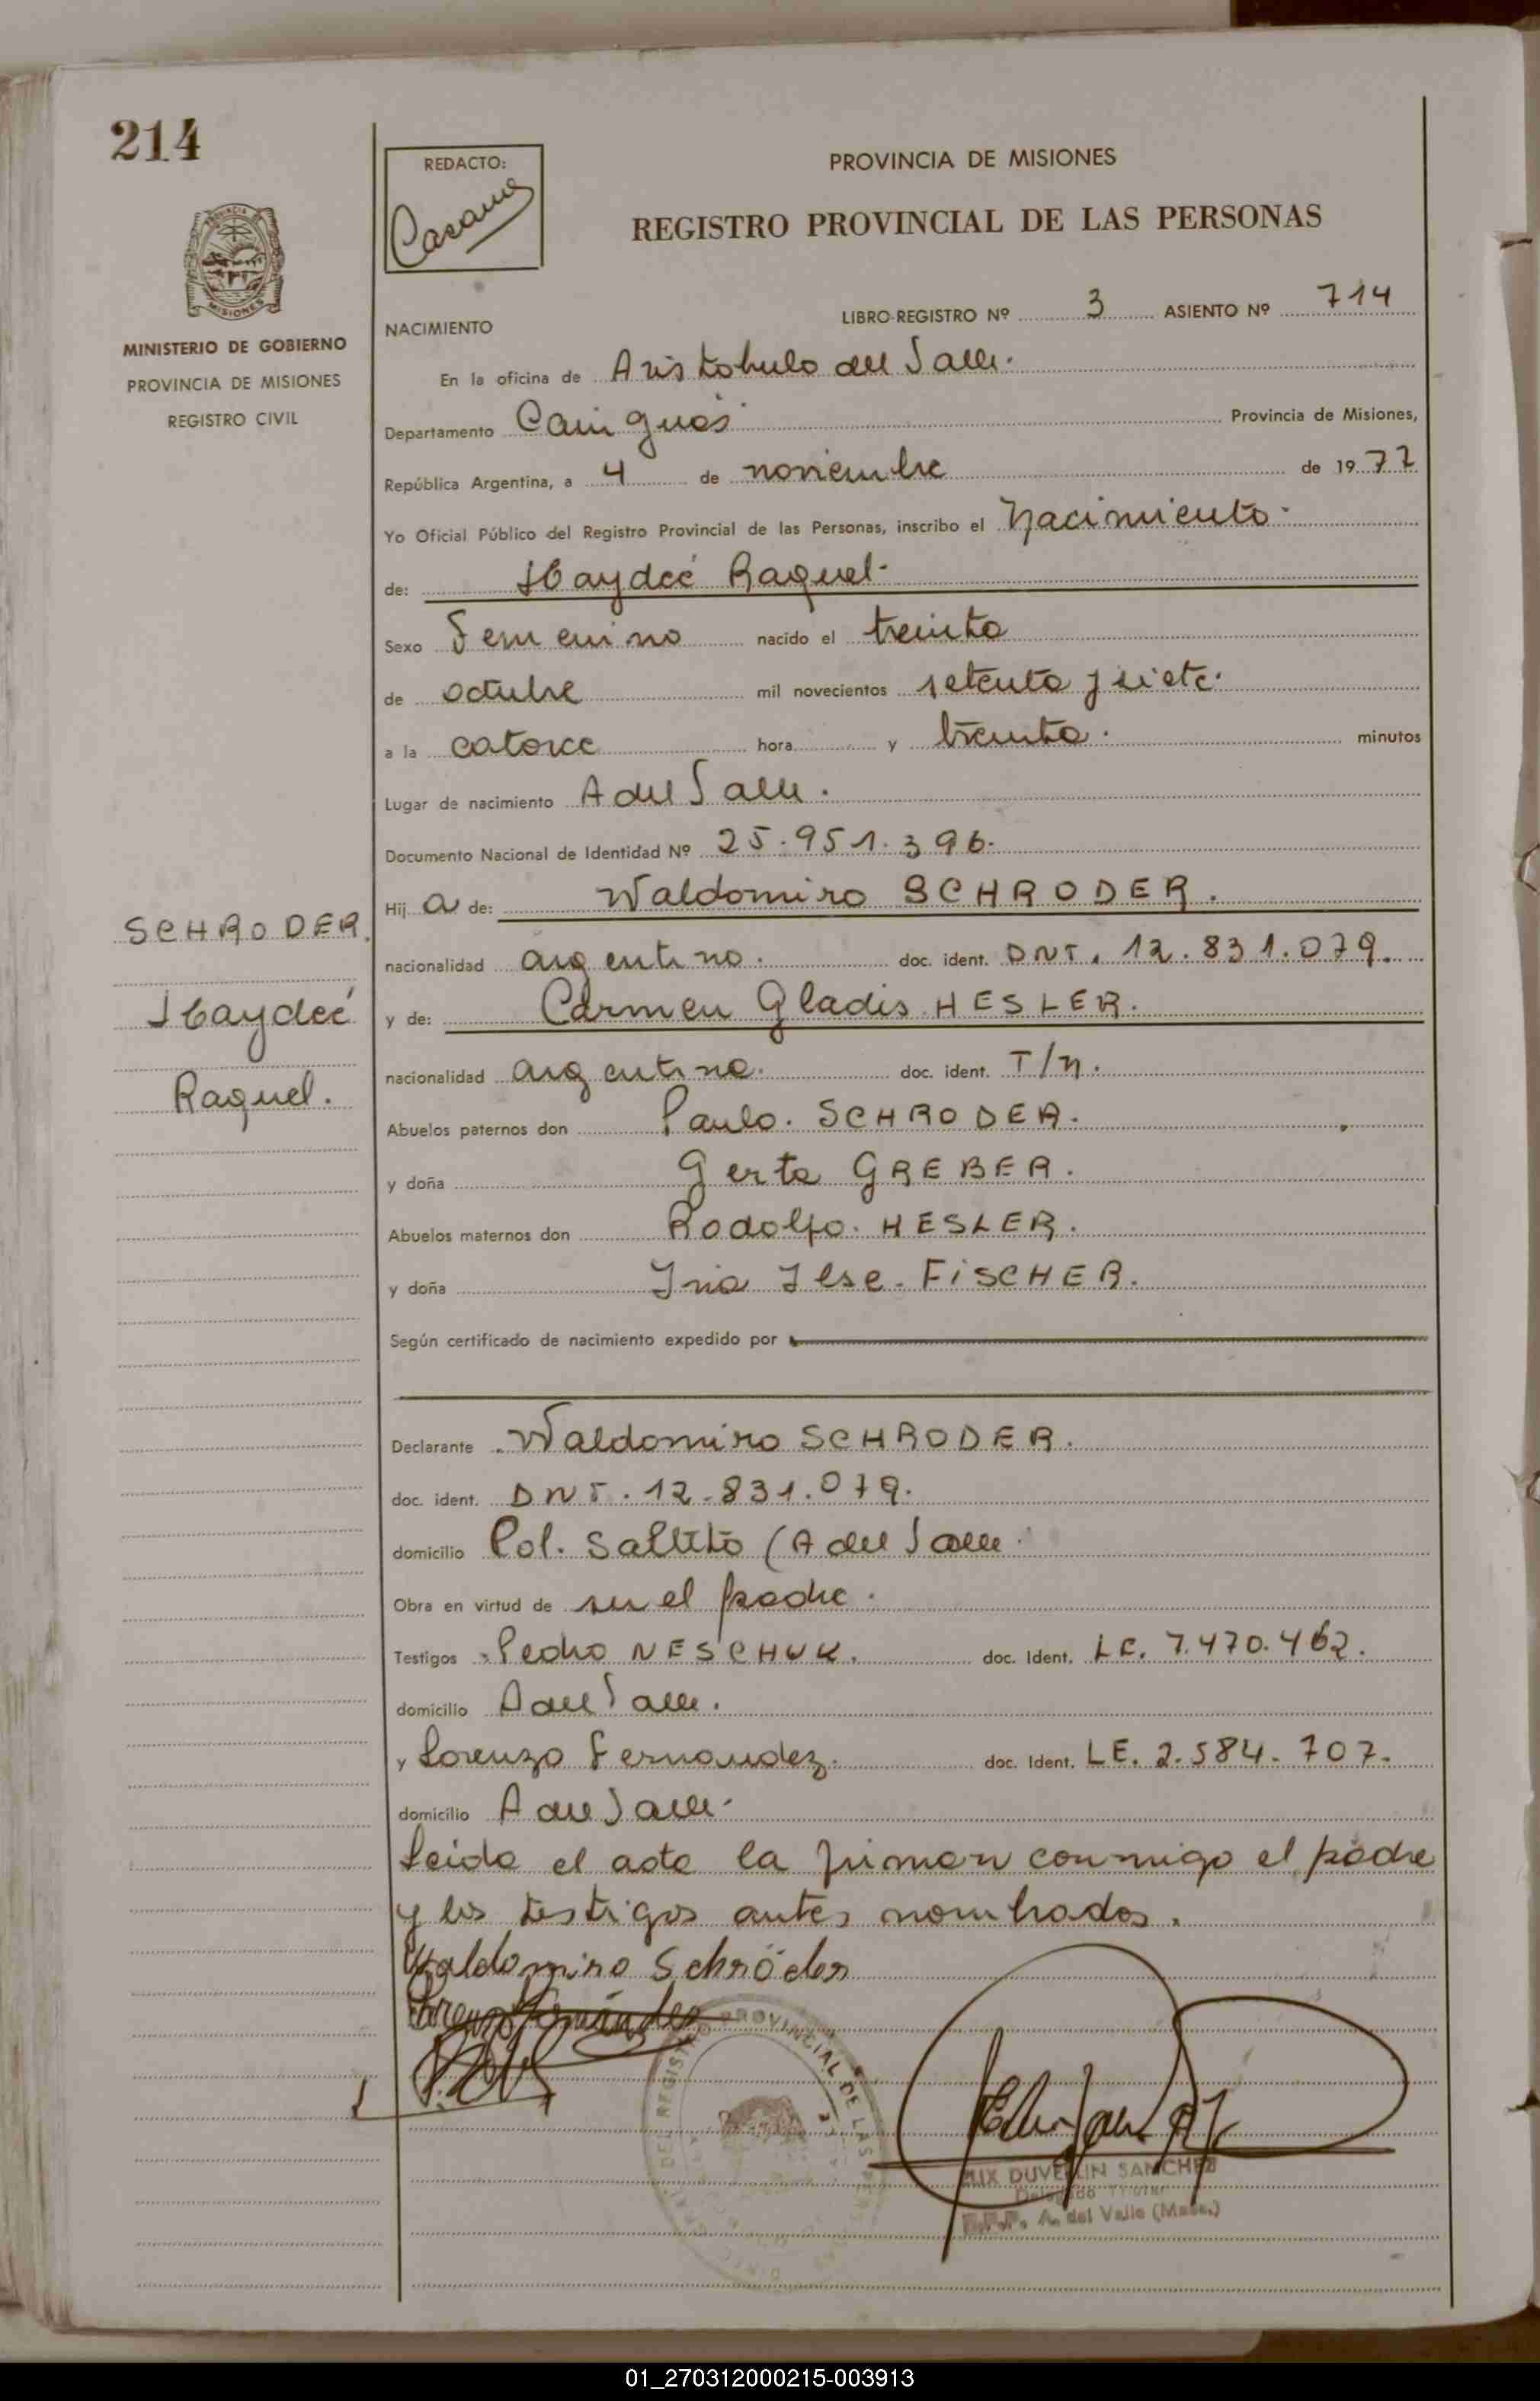 214
REDACTO:
PROVINCIA DE MISIONES
REGISTRO PROVINCIAL DE LAS PERSONAS
MISIONES
MINISTERIO DE GOBIERNO
PROVINCIA DE MISIONES
REGISTRO CIVIL
LIBRO-REGISTRO Nº 3 ASIENTO Nº 714
NACIMIENTO
En la oficina de Aristobulo del Valle.
Departamento Cainguás Provincia de Misiones,
República Argentina, a 4 de noviembre de 1977
Yo Oficial Público del Registro Provincial de las Personas, inscribo el Nacimiento
de: Haydeé Raquel
Sexo Femenino nacido el treinta
de octubre mil novecientos setenta y siete.
a la catorce hora y treinta. minutos
Lugar de nacimiento A del Valle.
Documento Nacional de Identidad Nº 25.951.396.
Hij a de: Waldomiro SCHRODER.
nacionalidad argentino. doc. ident. DNI. 12.831.079.
y de: Carmen Gladis HESLER.
nacionalidad argentina. doc. ident. T/N.
Abuelos paternos don Paulo. SCHRODER.
y doña Gerta GREBER.
Abuelos maternos don Rodolfo. HESLER.
y doña Iria Ilse. FISCHER.
Según certificado de nacimiento expedido por
SCHRODER.
Haydeé
Raquel.
Declarante Waldomiro SCHRODER.
doc. ident. DNI. 12.831.079.
domicilio Col. Saltito (A del Valle
Obra en virtud de ser el padre.
Testigos Pedro NESCHUK. doc. Ident. LE. 7.470.462.
domicilio A del Valle.
y Lorenzo Fernandez. doc. Ident. LE. 2.584.707.
domicilio A del Valle.
Leida el acta la firman conmigo el padre
y los testigos antes nombrados.
Waldomiro Schröder
Lorenzo Fernández
REGISTRO PROVINCIAL DE LAS
DUVERLIN SANCHEZ
Delegado Titular
A. del Valle (Mnes.)
01_270312000215-003913